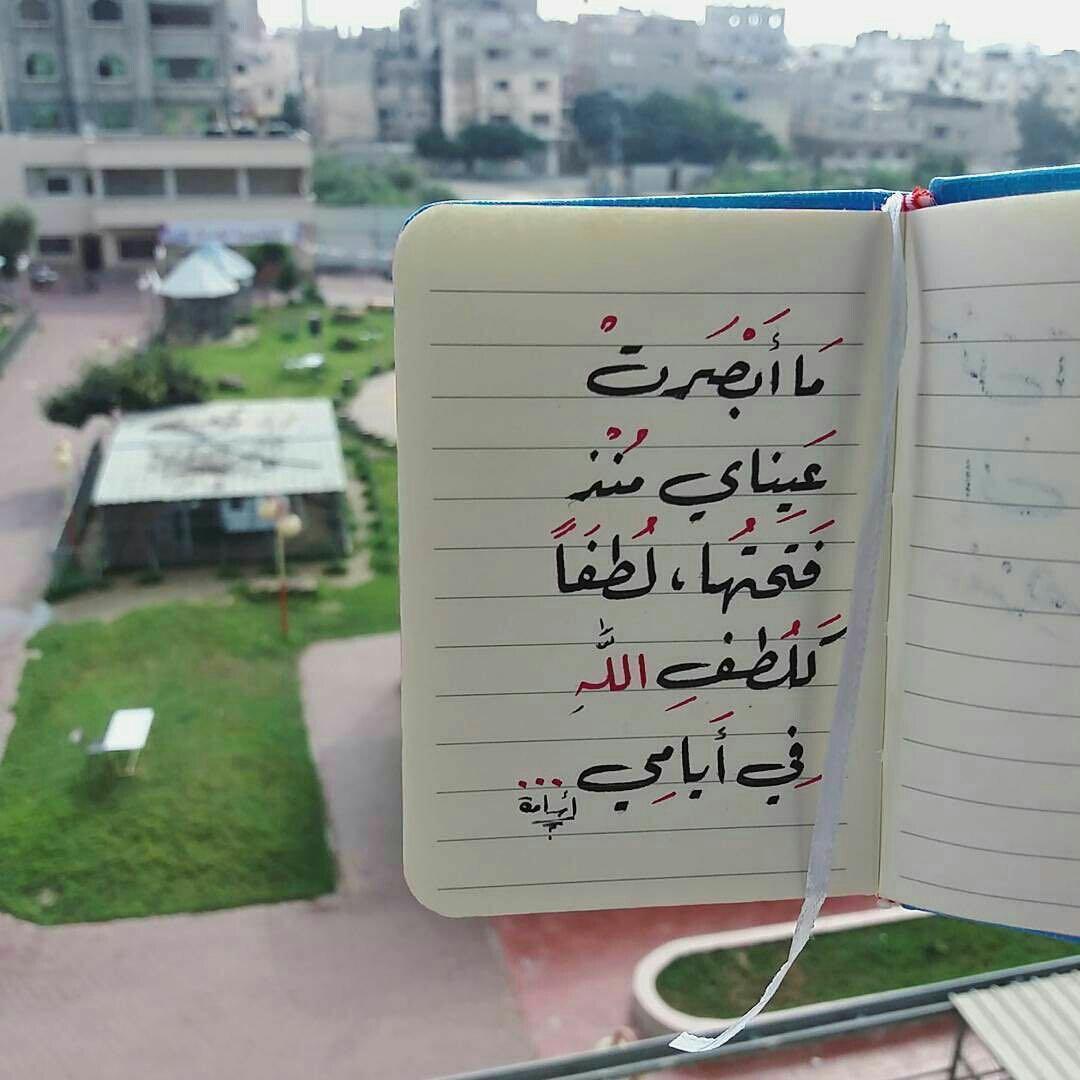 مَا أَبْصَرتْ
عَينَاي مُنْذ
فَتَحتُهَا، لُطفَاً
كَلُطفِ اللَّهِ
فِي أَيامِي ...
أسامة